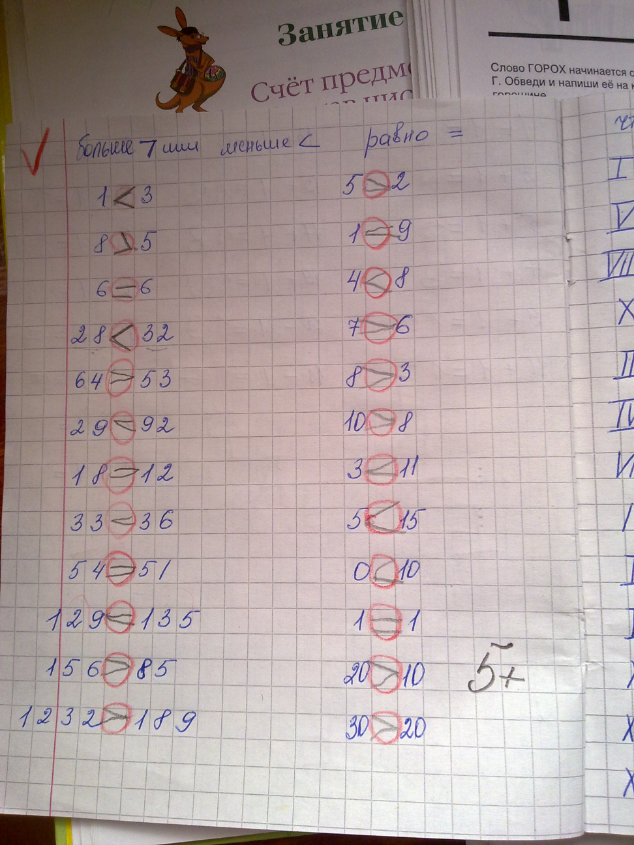 Занятие
Счёт предм
Слово ГОРОХ начинается с
Г. Обведи и напиши её на
горошине
больше > или меньше < равно =
1 < 3
8 > 5
6 = 6
28 < 32
64 > 53
29 < 92
18 > 12
33 < 36
54 > 51
129 < 135
156 > 85
1232 > 189
5 > 2
1 = 9
4 < 8
7 > 6
8 > 3
10 > 8
3 < 11
5 < 15
0 < 10
1 = 1
20 > 10
30 > 20
5+
I
V
VII
X
II
IV